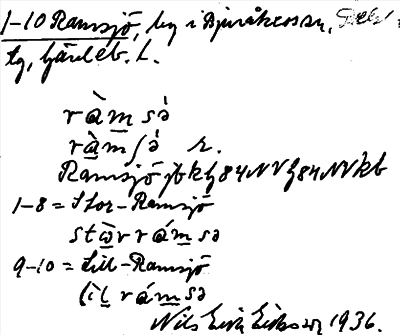 1-10 Ramsjö, by i Bjuråkers sn,
tg, Gävleb. L.
ràmsə̀
ràmʃə̀ r.
Ramsjö jbk h 84 NV h 84 NV kb
1-8 = Stor-Ramsjö
stωr rámsə
9-10 = Lill-Ramsjö
lìl rámsə
Nils Erik Eriksson 1936.